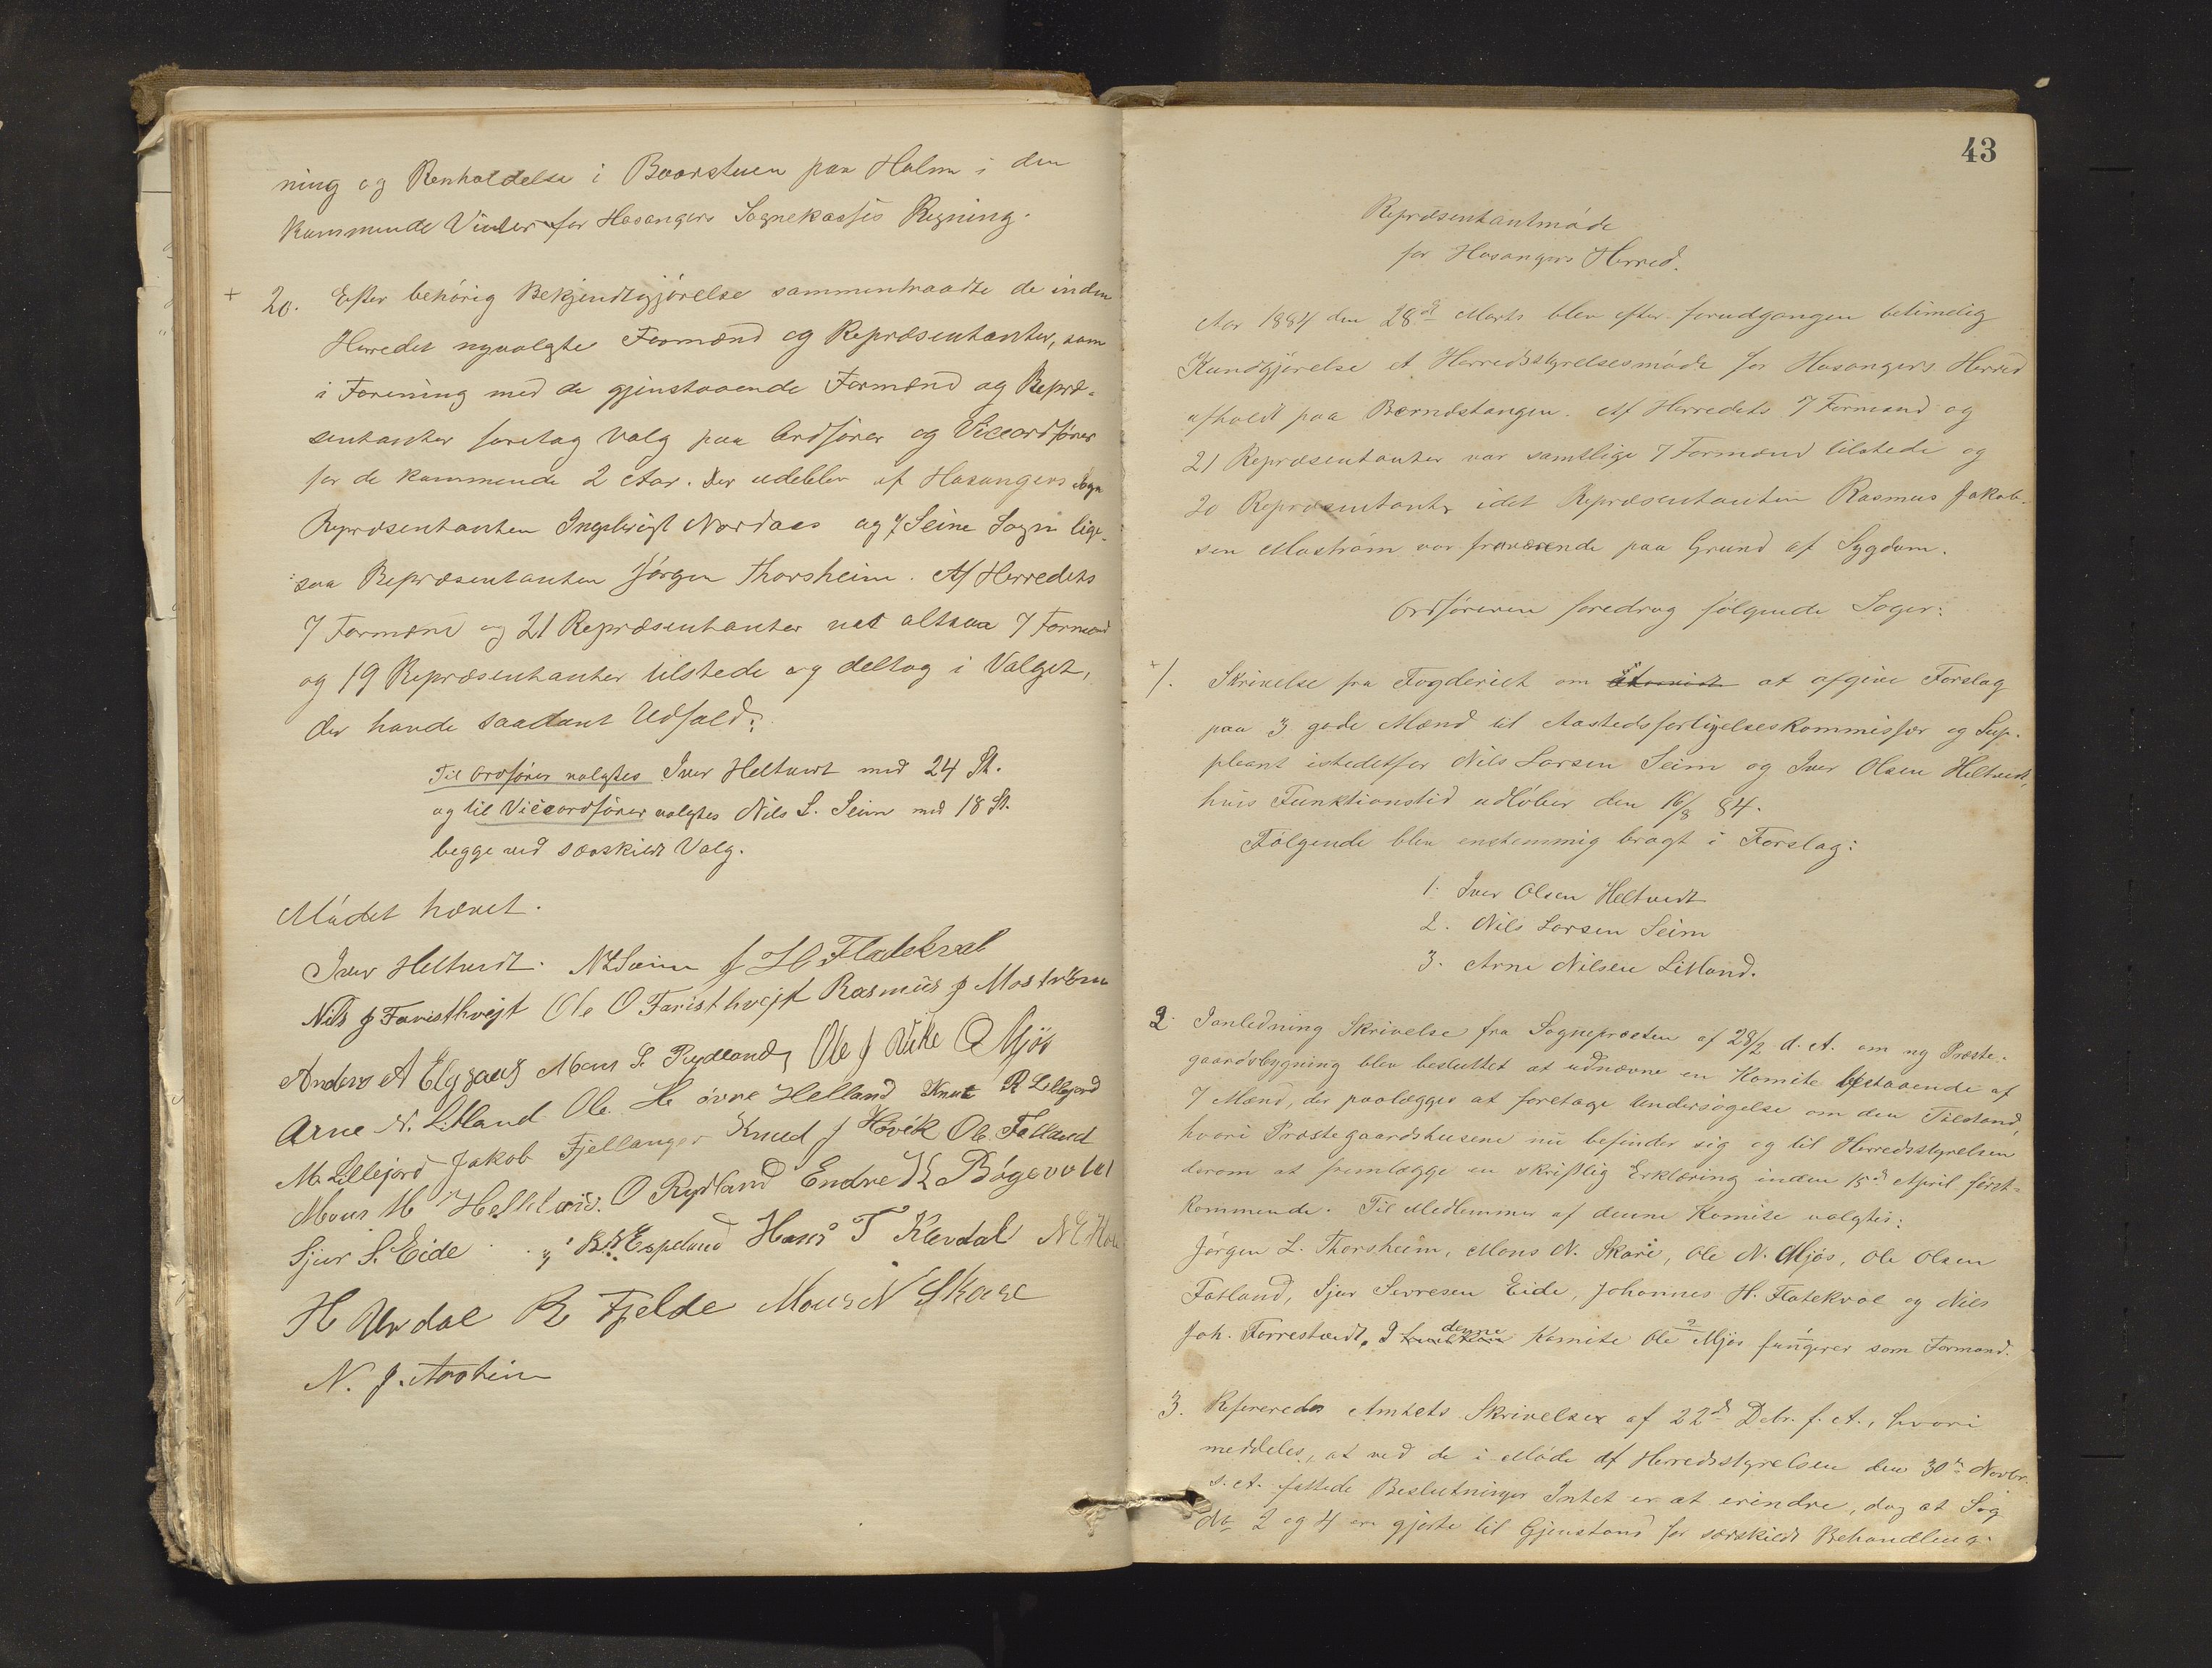 ning og Renholdelse i Baarstuen paa Holm i den
kommende Vinter for Hosangers Sognekasses Regning.
+ 20. Efter behörig Bekjendtgjörelse sammentraadte de inden
Herredet nyvalgte Formænd og Repræsentanter, som
i Forening med de gjenstaaende Formænd og Repræ-
sentanter foretog Valg paa Ordförer og Viceordförer
for de kommende 2 Aar. Der udeblev af Hosangers Sogn
Repræsentanten Ingebrigt Nordaas og f Seine Sogn lige-
saa Repræsentanten Jörgen Thorsheim. Af Herredets
7 Formænd og 21 Repræsentanter var altsaa 7 Formænd
og 19 Repræsentanter tilstede og deltog i Valget,
der havde saadant Udfald:
Til Ordförer valgtes Iver Heltvedt med 24 St.
og til Viceordförer valgtes Nils L. Seim med 18 St.
begge ved særskildt Valg.
Mödet hævet.
Iver Heltvedt. N L Seim J H Flatekval
Nils J Faristhvejt Ole O Faristhvejt Rasmus J Moström
Anders A Elgsaas Mons S. Rydland, Ole J Vike O Mjös
Arne N. Litland Ole H övre Helland Knut R Lillejord
M Lillejord Jakob Fjellanger Knud J Hövik Ole Fatland
Mons M Helland. O Rydland Endre K Bögevold
Sjur S. Eide B. Espeland Hans T Klevdal N E
H Urdal R Fjelde Mons N Skare
N. J.
43
Repræsentantmöde
for Hosangers Herred.
Aar 1884 den 28de Marts blev efter forudgangen betimelig
Kundgjörelse et Herredsstyrelsesmöde for Hosangers Herred
afholdt paa Bærnestangen. Af Herredets 7 Formænd og
21 Repræsentanter var samtlige 7 Formænd tilstede og
20 Repræsentanter idet Repræsentanten Rasmus Jakob-
sen Moström var fraværende paa Grund af Sygdom.
Ordföreren foredrog fölgende Sager:
+ 1. Skrivelse fra Fogderiet om at afgive Forslag
paa 3 gode Mænd til Aastedsforligelseskommissær og Sup-
pleant istedetfor Nils Larsen Seim og Iver Olsen Heltvedt,
hvis Funktionstid udlöber den 16/8 84.
Fölgende blev enstemmig bragt i Forslag:
1. Iver Olsen Heltvedt
2. Nils Larsen Seim
3. Arne Nilsen Litland.
2. I anledning Skrivelse fra Sognepræsten af 28/2 d. A. om ny Præste-
gaardsbygning blev besluttet at udnævne en Komite bestaaende af
7 Mænd, der paalægges at foretage Undersögelse om den Tilstand,
hvori Præstegaardshusene nu befinder sig og til Herredsstyrelsen
derom at fremlægge en skriftlig Erklæring inden 15de April först-
kommende. Til Medlemmer af denne Komite valgtes:
Jörgen L. Thorsheim, Mons N. Skare, Ole N. Mjös, Ole Olsen
Fatland, Sjur Sivresen Eide, Johannes H. Flatekval og Nils
Joh. Farrestvedt. I denne Komite Ole N Mjös fungerer som Formand.
3. Refereredes Amtets Skrivelser af 22de Debr. f. A., hvori
meddeles, at ved de i Möde af Herredsstyrelsen den 30te Novbr.
s. A. fattede Beslutninger Intet er at erindre, dog at Sag
No 2 og 4 er gjorte til Gjenstand for særskildt Behandling.